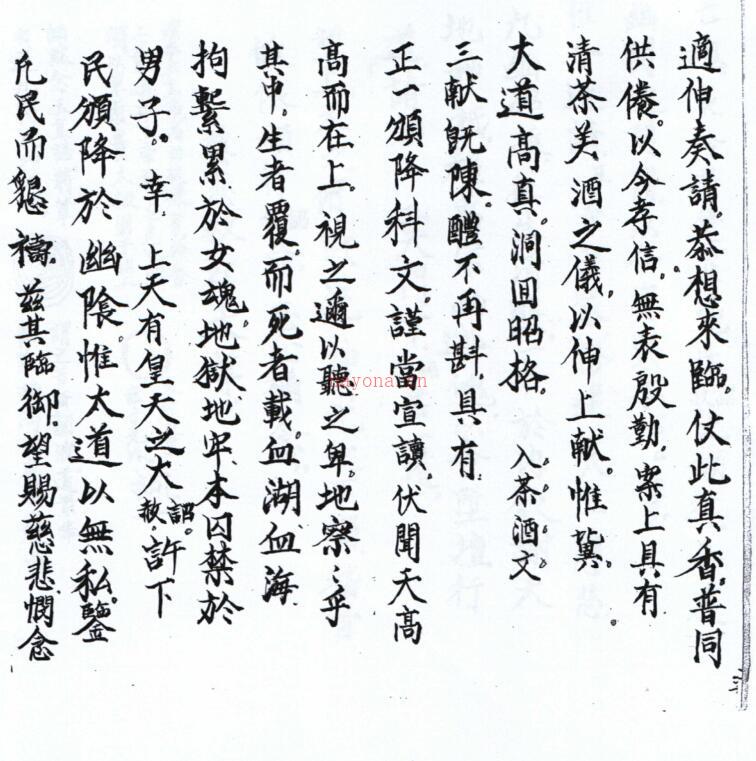 適伸奏請。恭想來臨。仗此真香。普同
供養。以今孝信。無表殷勤。案上具有
清茶美酒之儀。以伸上献。惟冀。
大道高真。洞回昭格。入茶酒文。
三献既陳。醴不再斟。具有
正一頒降科文。謹當宣讀。伏聞天高
高而在上。視之邇以聽之卑。地察〻乎
其中。生者覆。而死者載。血湖血海
拘繫累於女魂。地獄地牢本囚禁於
男子。幸上天有皇天之大詔。赦許下
民頒降於幽陰。惟太道以無私。鑒
凢民而懇禱。茲其臨御。望賜慈悲憫念
nayona.cn